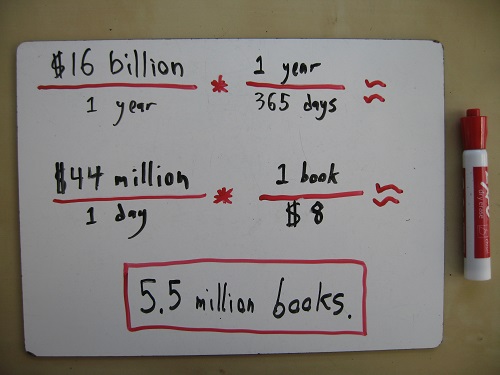 $16 billion * 1 year ≈
1 year 365 days
$44 million * 1 book ≈
1 day $8
5.5 million books.